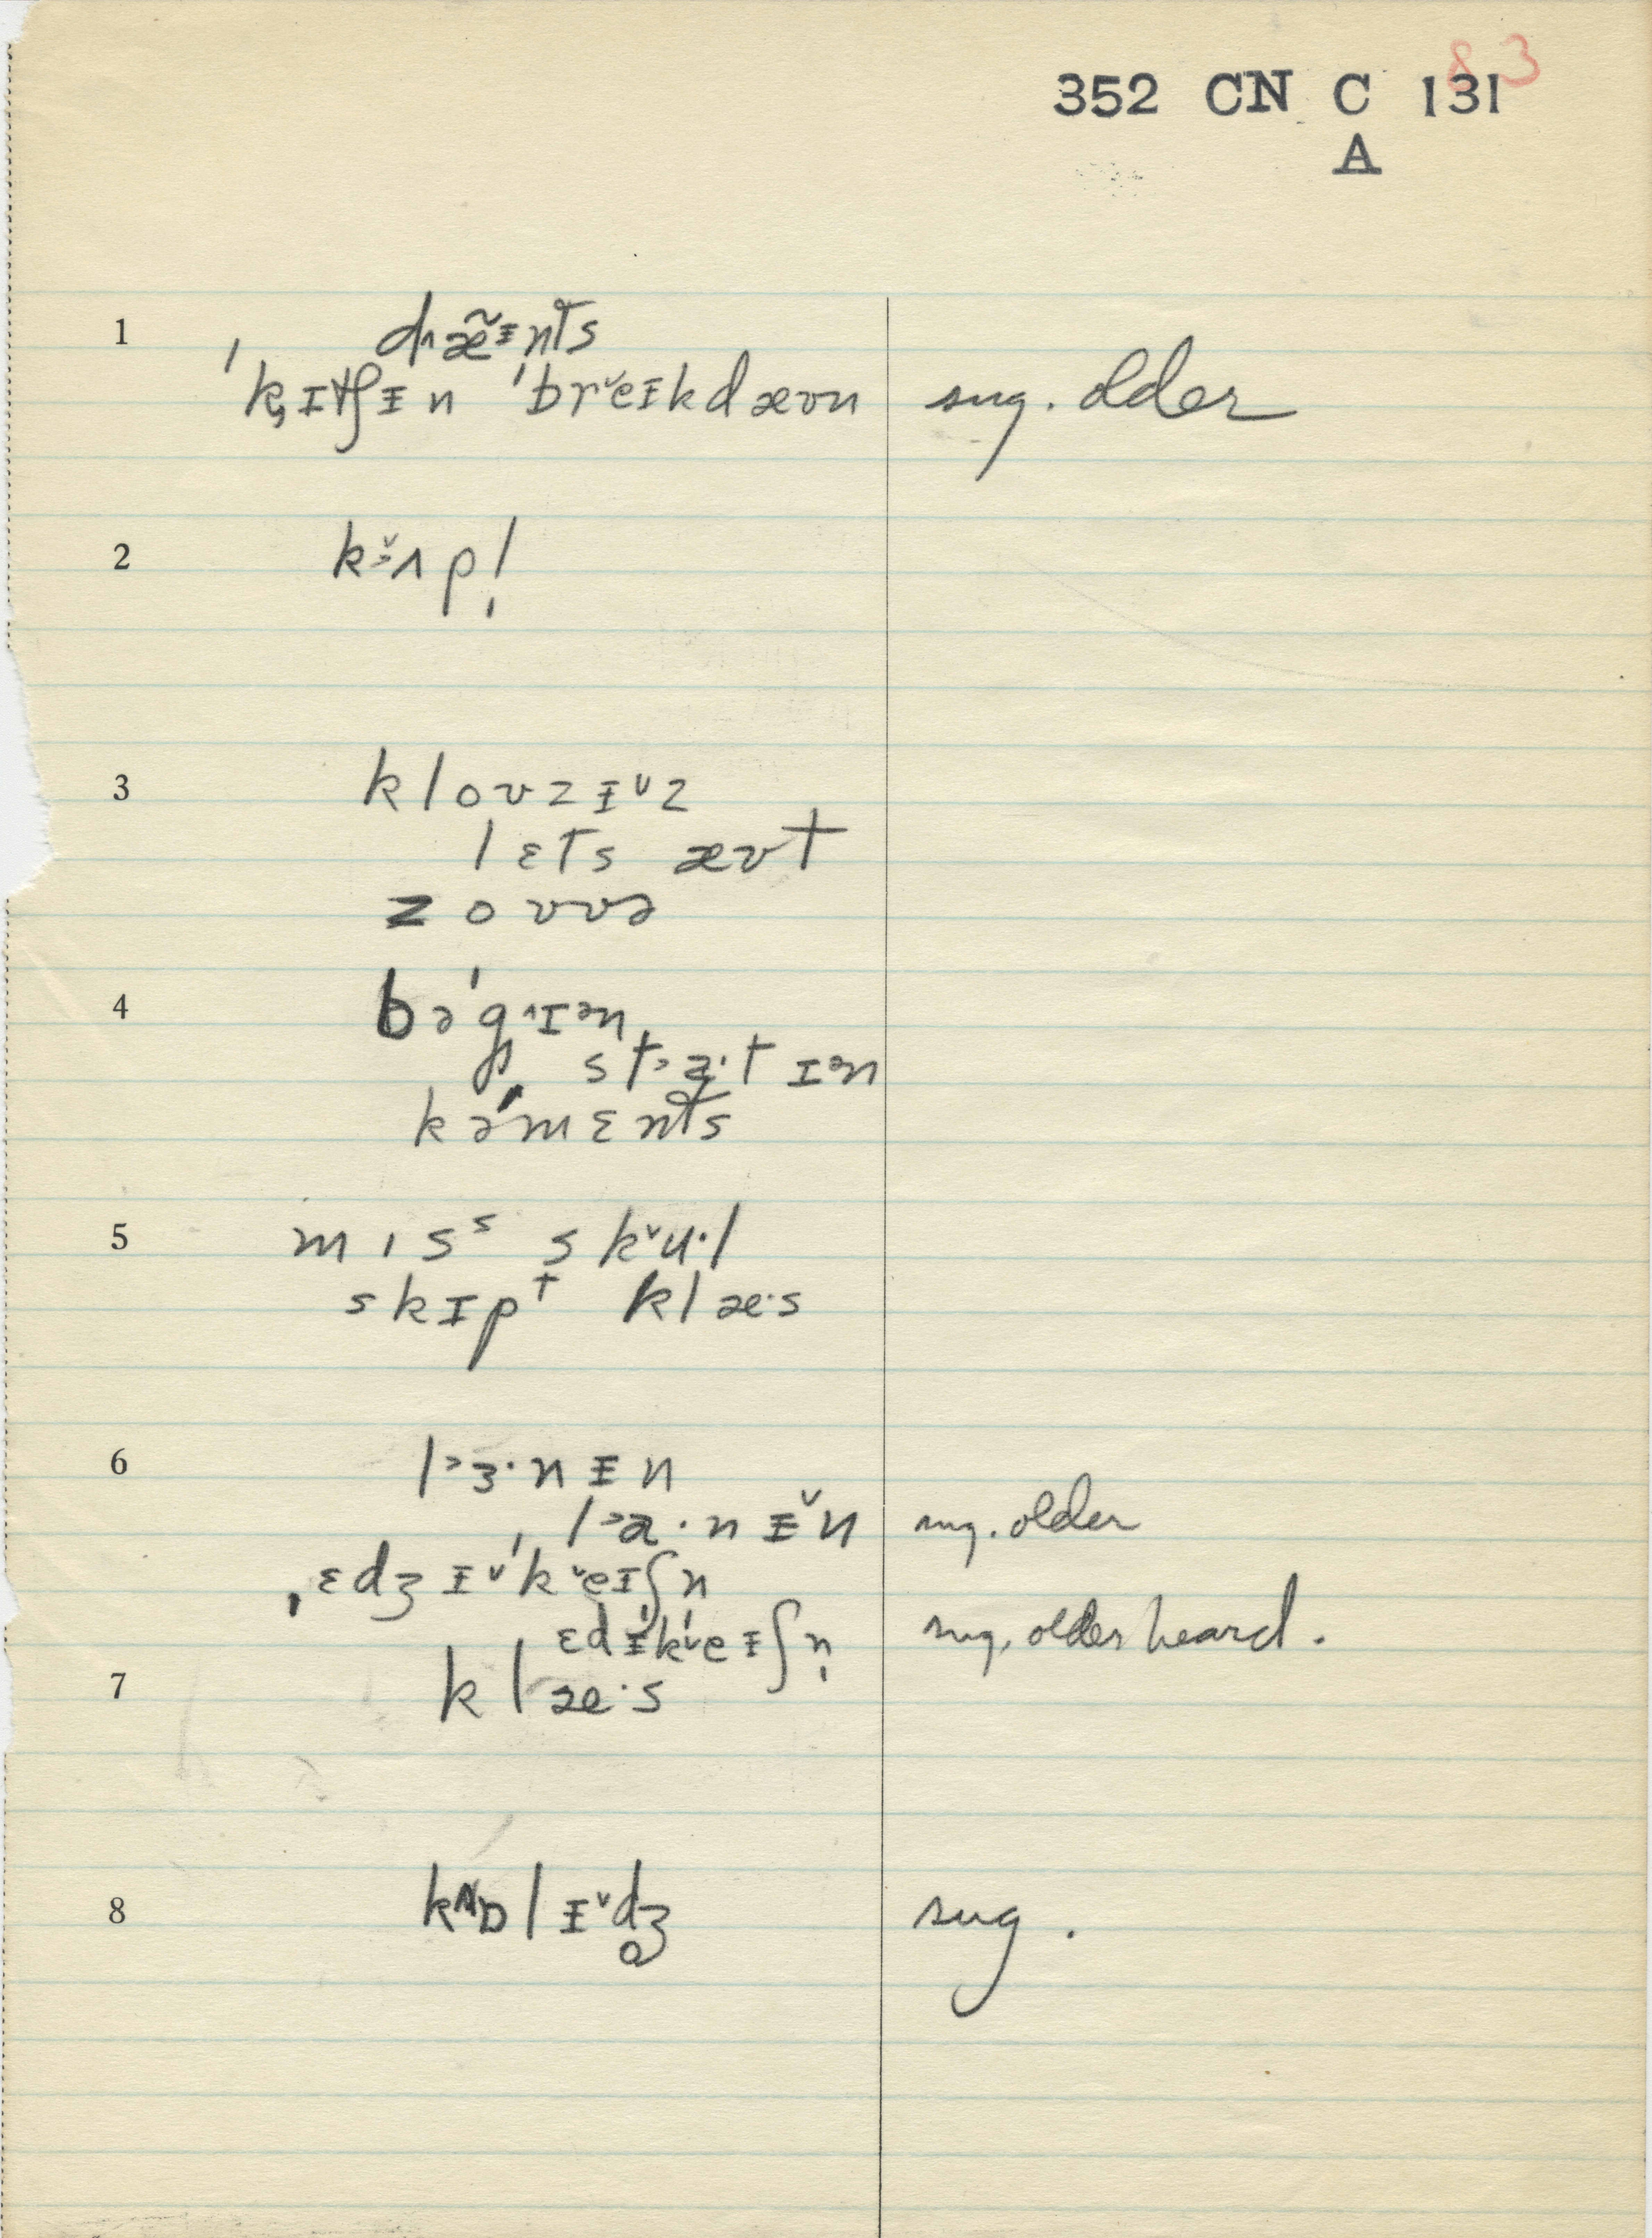 83
352 CN C 131
A
1 d˄æ̃ᵻnts
ˈk̡ɪtʃᵻn ˈbrˇeᵻkdæʊn sug. older
2 k˃̌ʌpl̩
3 kloʊzᵻˇz
lɛts æʊt
zoʊvə
4 bəˈg˄ɪᵊn
st˃a·tɪᵊn
kəˈmɛnts
5 mɪsˢ skˇu·l
skɪpᵗ klæ·s
6 l˃ɜ·nᵻn
l˃a·nᵻ̌n sug. older
ˌɛdʒᵻˇˈkˇeɪʃn̩
ɛdᵻˈkˇeᵻʃn̩ sug. older heard.
7 klæ·s
8 kɒlᵻˇdʒ̥ sug.